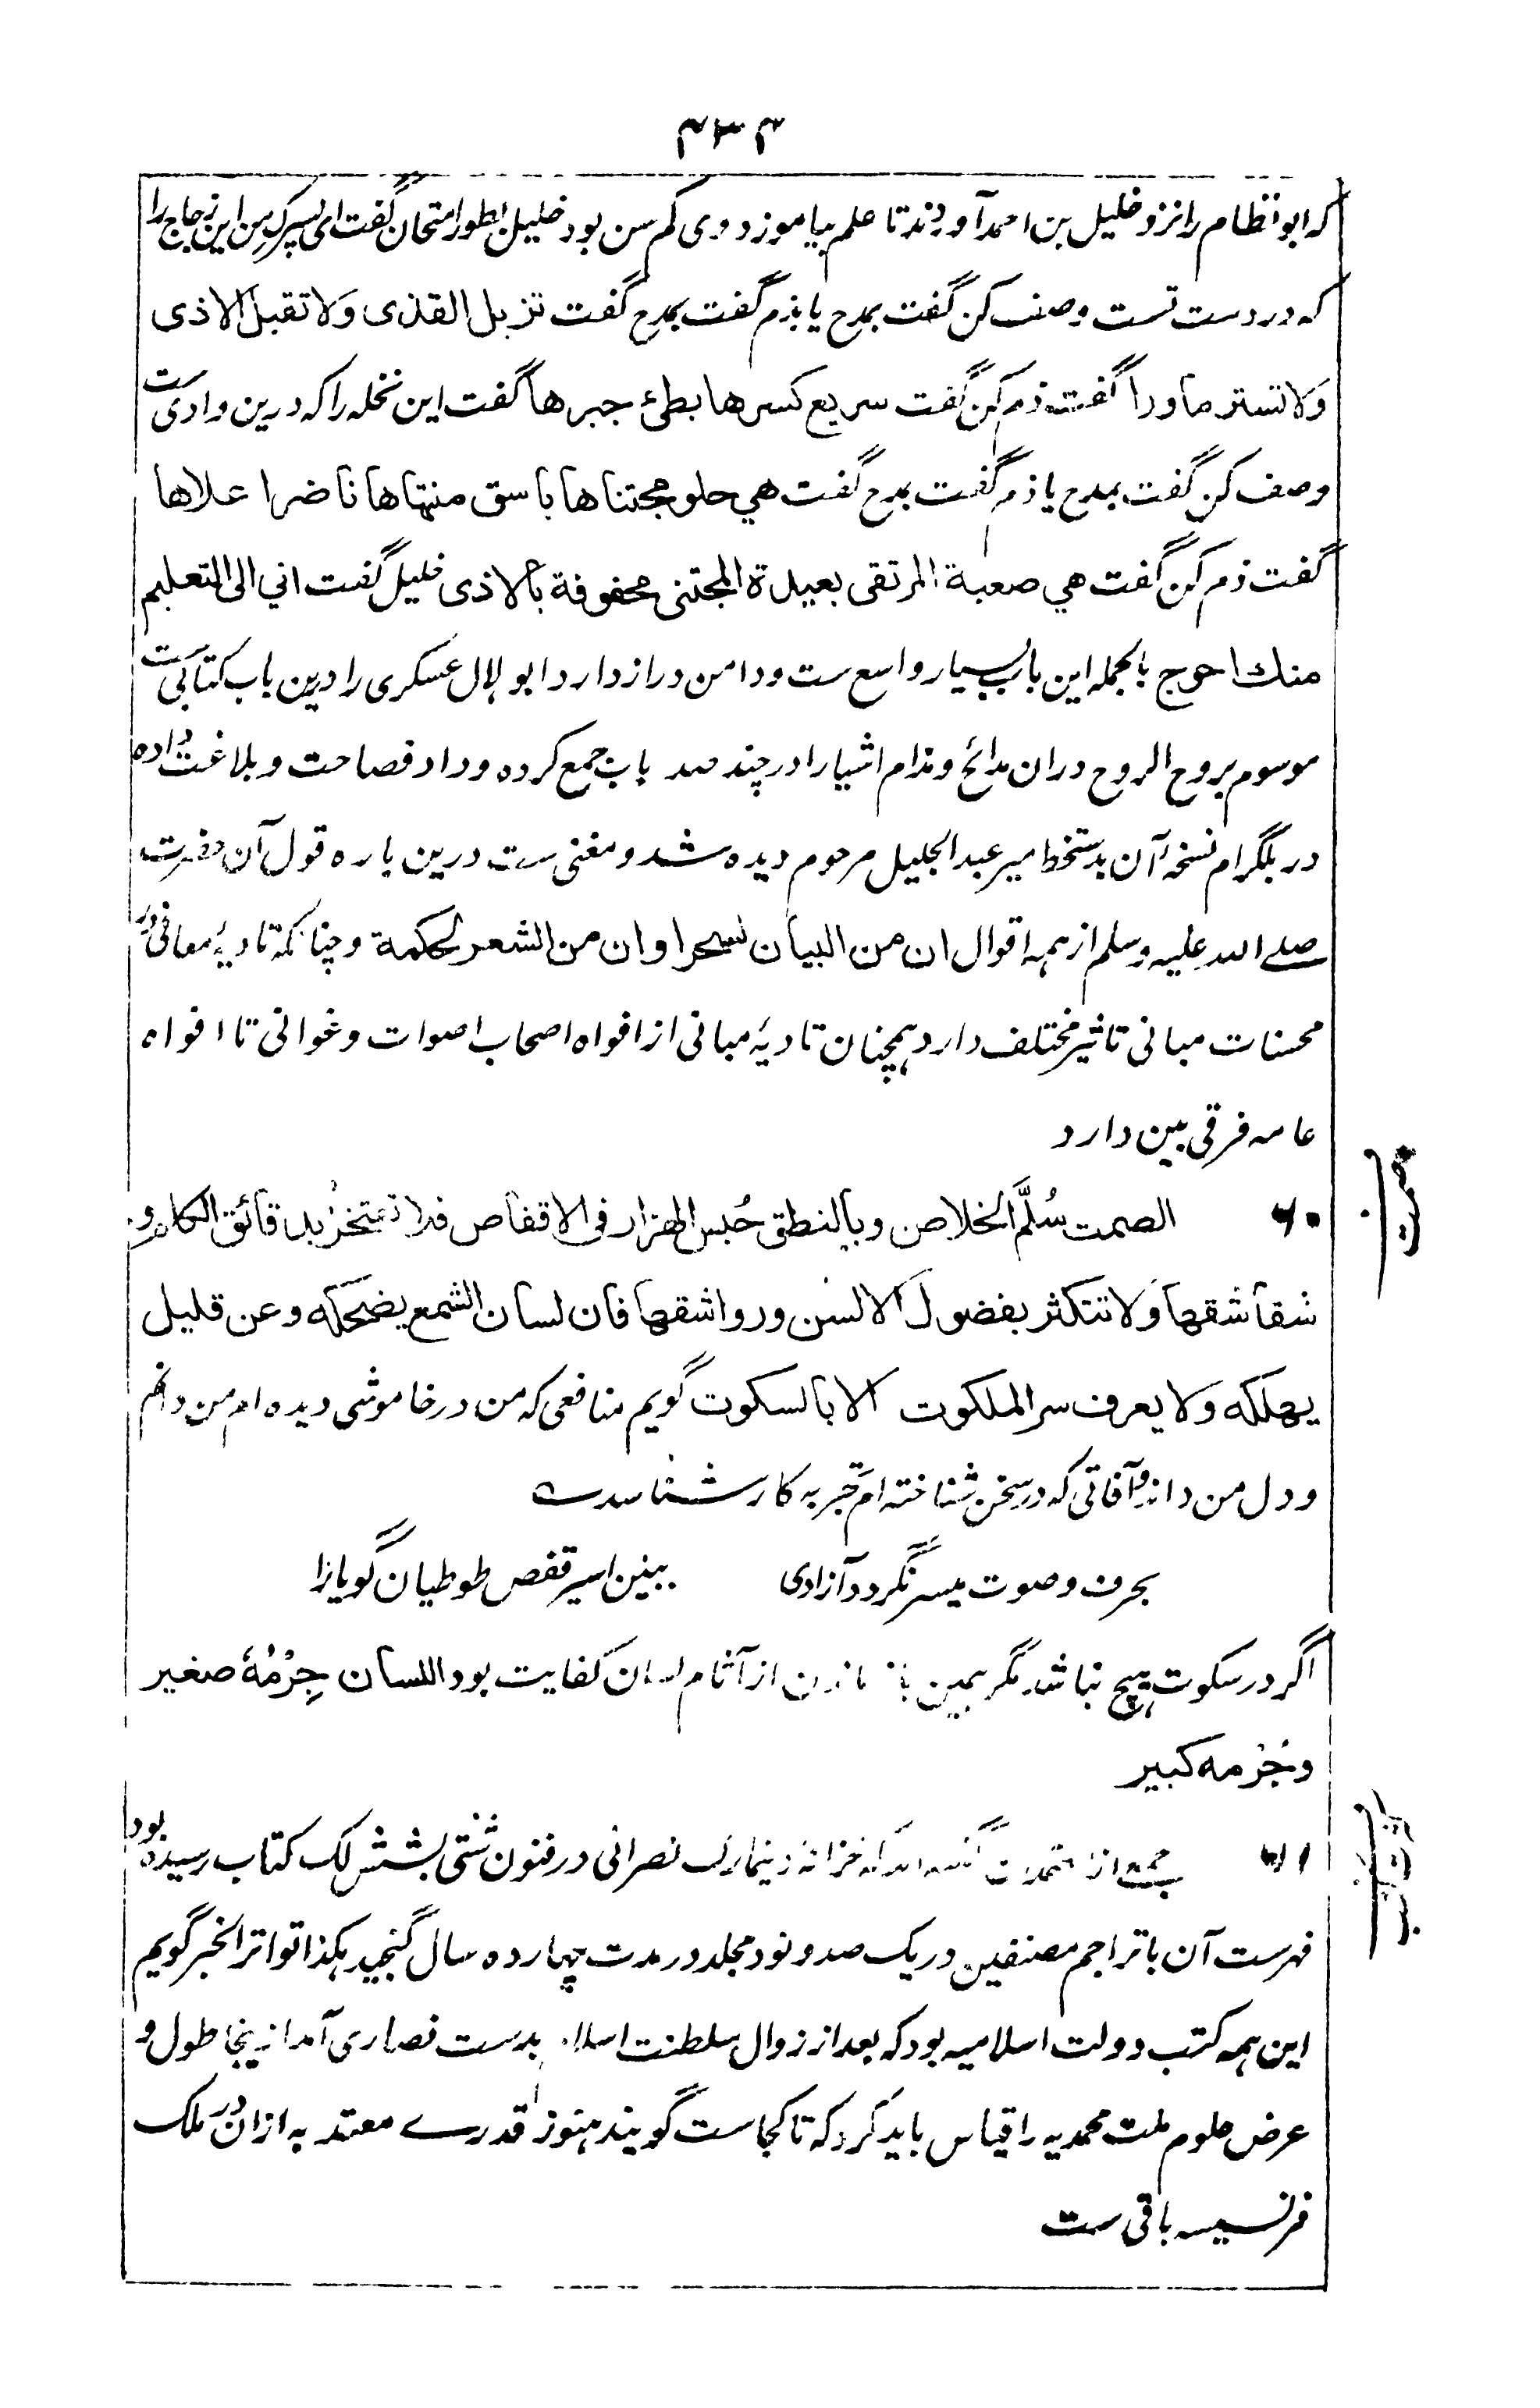 ۴۳۴
که ابو نظام را نزد خلیل بن احمد آوردند تا علم بیاموزد و وی کم سن بود خلیل بطور امتحان گفت ای پسرک من این زجاج را
که در دست تست وصف کن گفت بمدح یا بذم گفت بمدح گفت تزیل القذی ولا تقبل الاذی
ولا تستر ما ورا گفت ذم کن گفت سریع کسرها بطئ جبرها گفت این نخله را که درین وادی ست
وصف کن گفت بمدح یا ذم گفت بمدح گفت هي حلو مجتناها باسق منتهاها ناضر اعلاها
گفت ذم کن گفت هي صعبة المرتقى بعيدة المجتنى محفوفة بالاذى خلیل گفت اني الى التعليم
منك احوج بالجمله این باب بسیار واسع ست و دامن دراز دارد ابو هلال عسکری را درین باب کتابی ست
موسوم بروح الروح دران مدائح و مذام اشیا را در چند صد باب جمع کرده و داد فصاحت و بلاغت داده
در بلگرام نسخهٔ آن بدستخط میر عبد الجلیل مرحوم دیده شد و مغنی ست درین باره قول آن حضرت
صلے الله علیه وسلم از همه اقوال ان من البيان لسحرا وان من الشعر لحكمة و چنانکه تادیهٔ معانی در
محسنات مبانی تاثیر مختلف دارد همچنان تادیهٔ مبانی از افواه اصحاب اصوات و غوانی تا افواه
عامه فرقی بین دارد
صمت
۶۰ الصمت سُلَّم الخلاص وبالنطق حُبس الهزار فى الاقفاص فلا تفتخر بدقائق الكلام و
شقاشقها ولا تتكثر بفضول الالسن ورواشقها فان لسان الشمع يضحكه وعن قليل
يهلكه ولا يعرف سر الملكوت الا بالسكوت گویم منافعی که من در خاموشی دیده ام من دانم
و دل من داند و آفاتی که در سخن شناخته ام تجربه کار شناسد ے
بحرف و صوت میسر نگردد آزادی ببین اسیر قفص طوطیان گویا را
اگر در سکوت هیچ نباشد مگر همین باز ماندن از آثام لسان کفایت بود اللسان جِرْمُهٔ صغير
وجُرْمه كبير
کثرت کتب
۶۱ جمعے از گفته اند که خزانهٔ دنیمارک نصرانی در فنون شتی بشش لک کتاب رسیده بود
فهرست آن با تراجم مصنفین در یک صد و نود مجلد در مدت چهارده سال گنجید هکذا تواتر الخبر گویم
این همه کتب دولت اسلامیه بود که بعد از زوال سلطنت اسلام بدست نصاری آمد از ینجا طول و
عرض علوم ملت محمدیه را قیاس باید کرد که تا کجاست گویند هنوز قدرے معتد به ازان در ملک
فرنسیسه باقی ست